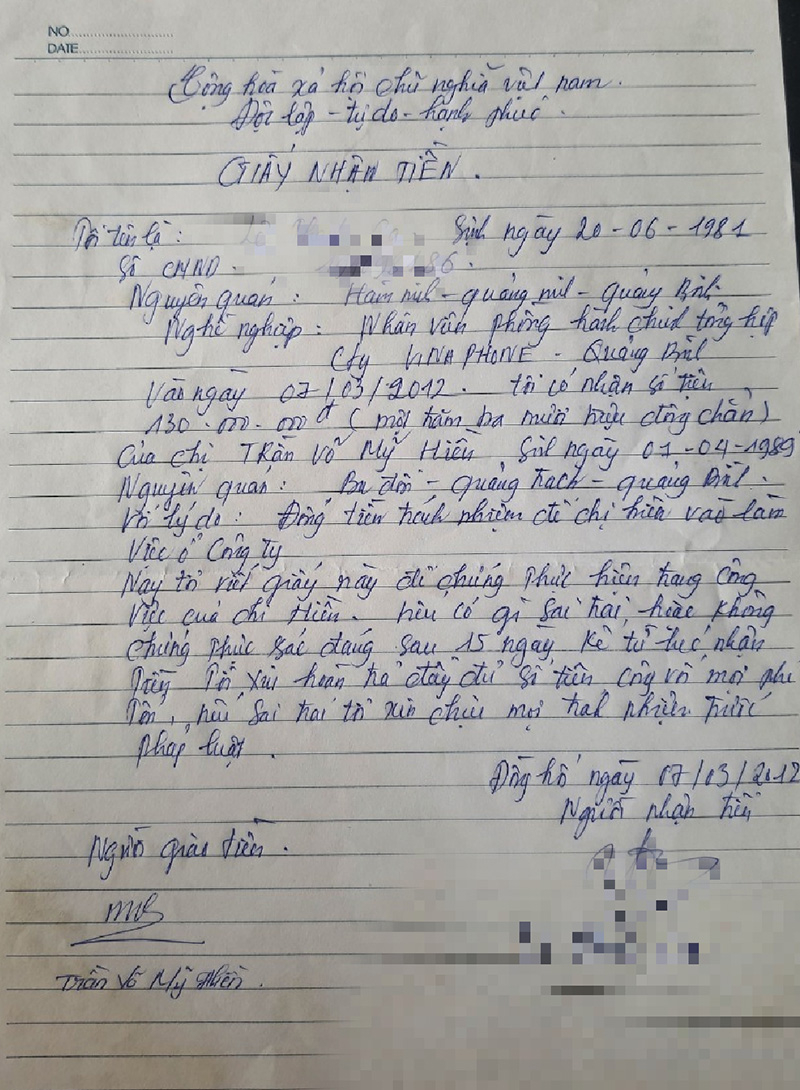 NO
DATE
Cộng hoà xả hội chủ nghĩa việt nam.
Độc lập - tự do - hạnh phúc.
GIẤY NHẬN TIỀN.
Tôi tên là: Sinh ngày 20-06-1981
Số CMND.
Nguyên quán: Hàm ninh - quảng ninh - quảng Bình
Nghề nghiệp: Nhân viên phòng hành chính tổng hợp
Cty VINAPHONE - Quảng Bình
Vào ngày 07/03/2012. tôi có nhận số tiền
130.000.000đ (một trăm ba mươi triệu đồng chẳn)
Của chị TRần Võ Mỹ Hiền Sinh ngày 01-04-1989
Nguyên quán: Ba đồn - quảng trạch - quảng Bình.
Với lý do: Đóng tiền trách nhiệm để chị hiền vào làm
Việc ở Công ty
Nay tôi viết giấy này để chứng thực hiện trạng công
Việc của chị Hiền. nếu có gì sai trái, hoặc không
chứng thực sác đáng sau 15 ngày kể từ lúc nhận
Tiền Tôi xin hoàn trả đầy đủ số tiền cộng với mọi phí
Tổn, nếu sai trái tôi xin chịu mọi trách nhiệm trước
pháp luật.
Đồng hới ngày 07/03/2012
Người nhận tiền
Người giao tiền.
Trần Võ Mỹ Hiền.